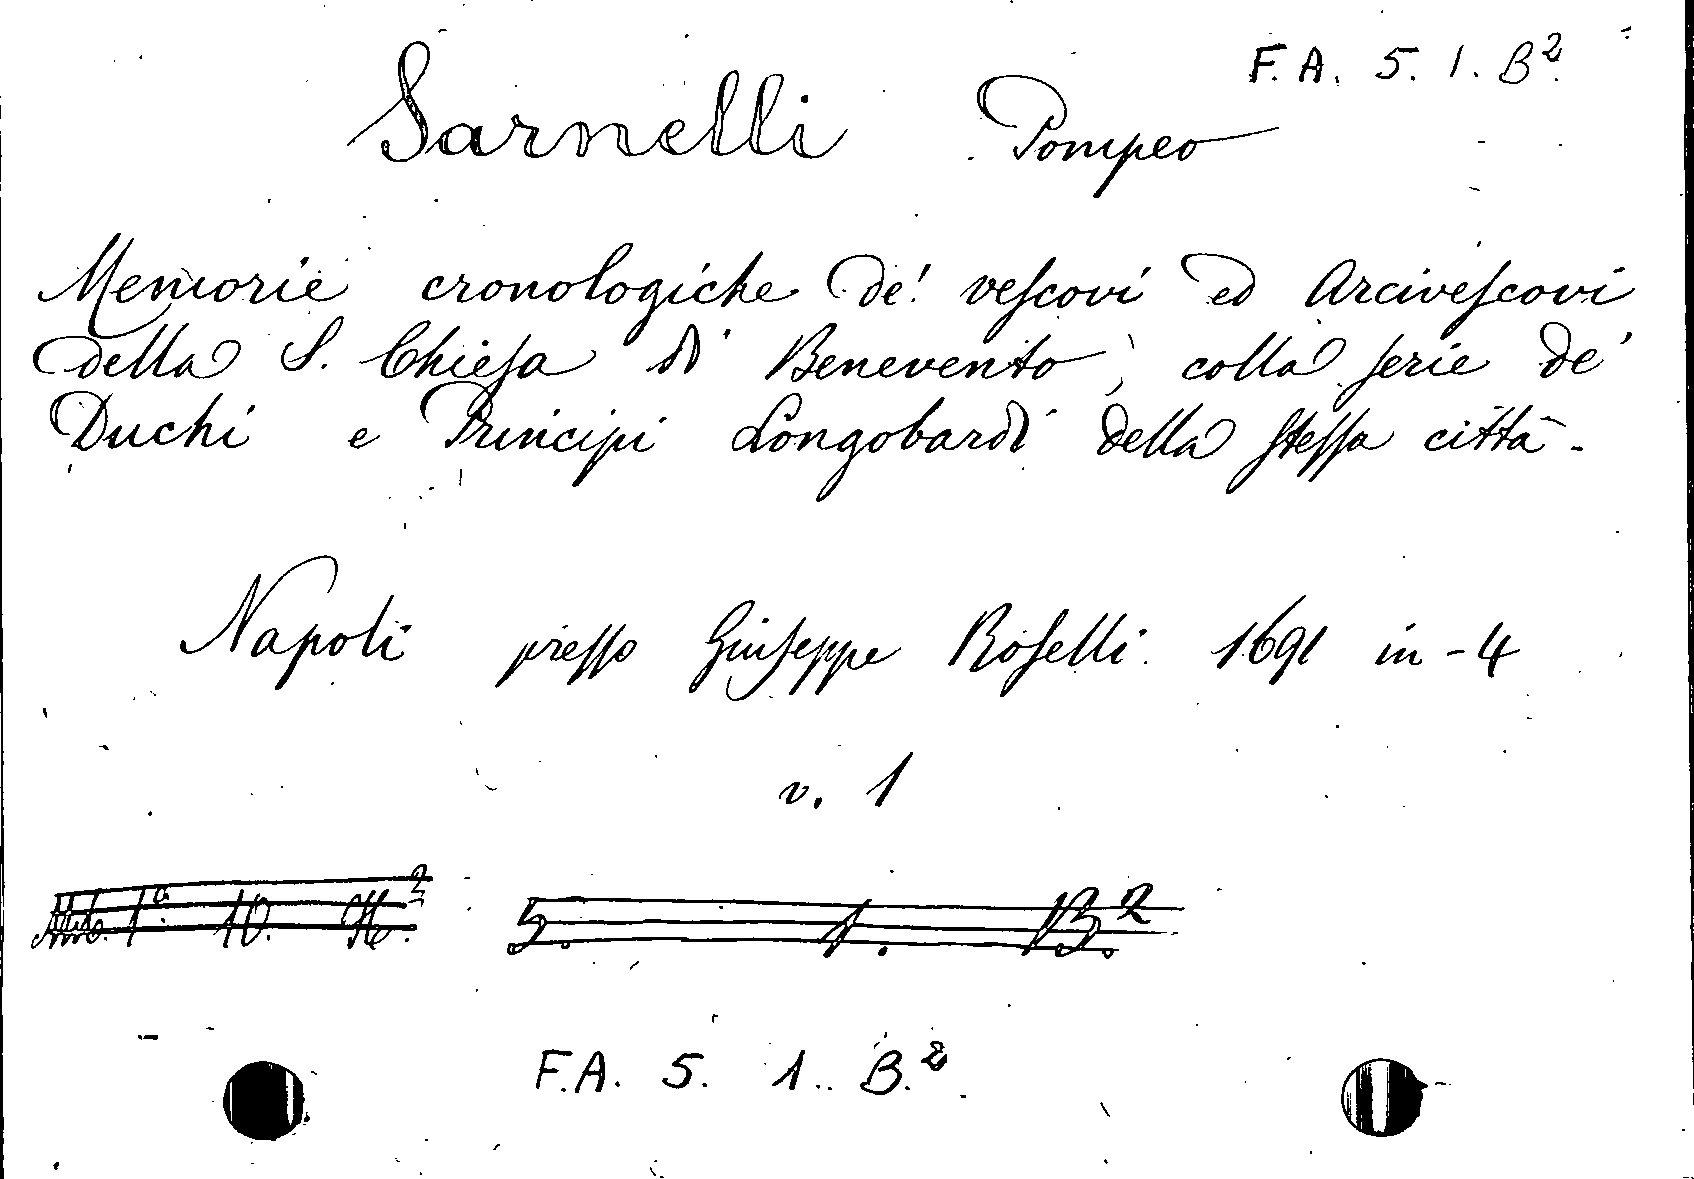 F. A. 5. 1. B²
Sarnelli Pompeo
Memorie cronologiche de' vescovi ed Arcivescovi
della S. Chiesa di Benevento, colla serie de'
Duchi e Principi Longobardi della stessa città.
Napoli presso Giuseppe Roselli. 1691 in-4
v. 1
1ª. 10. H.² 5. 1. B.²
F.A. 5. 1. B.²